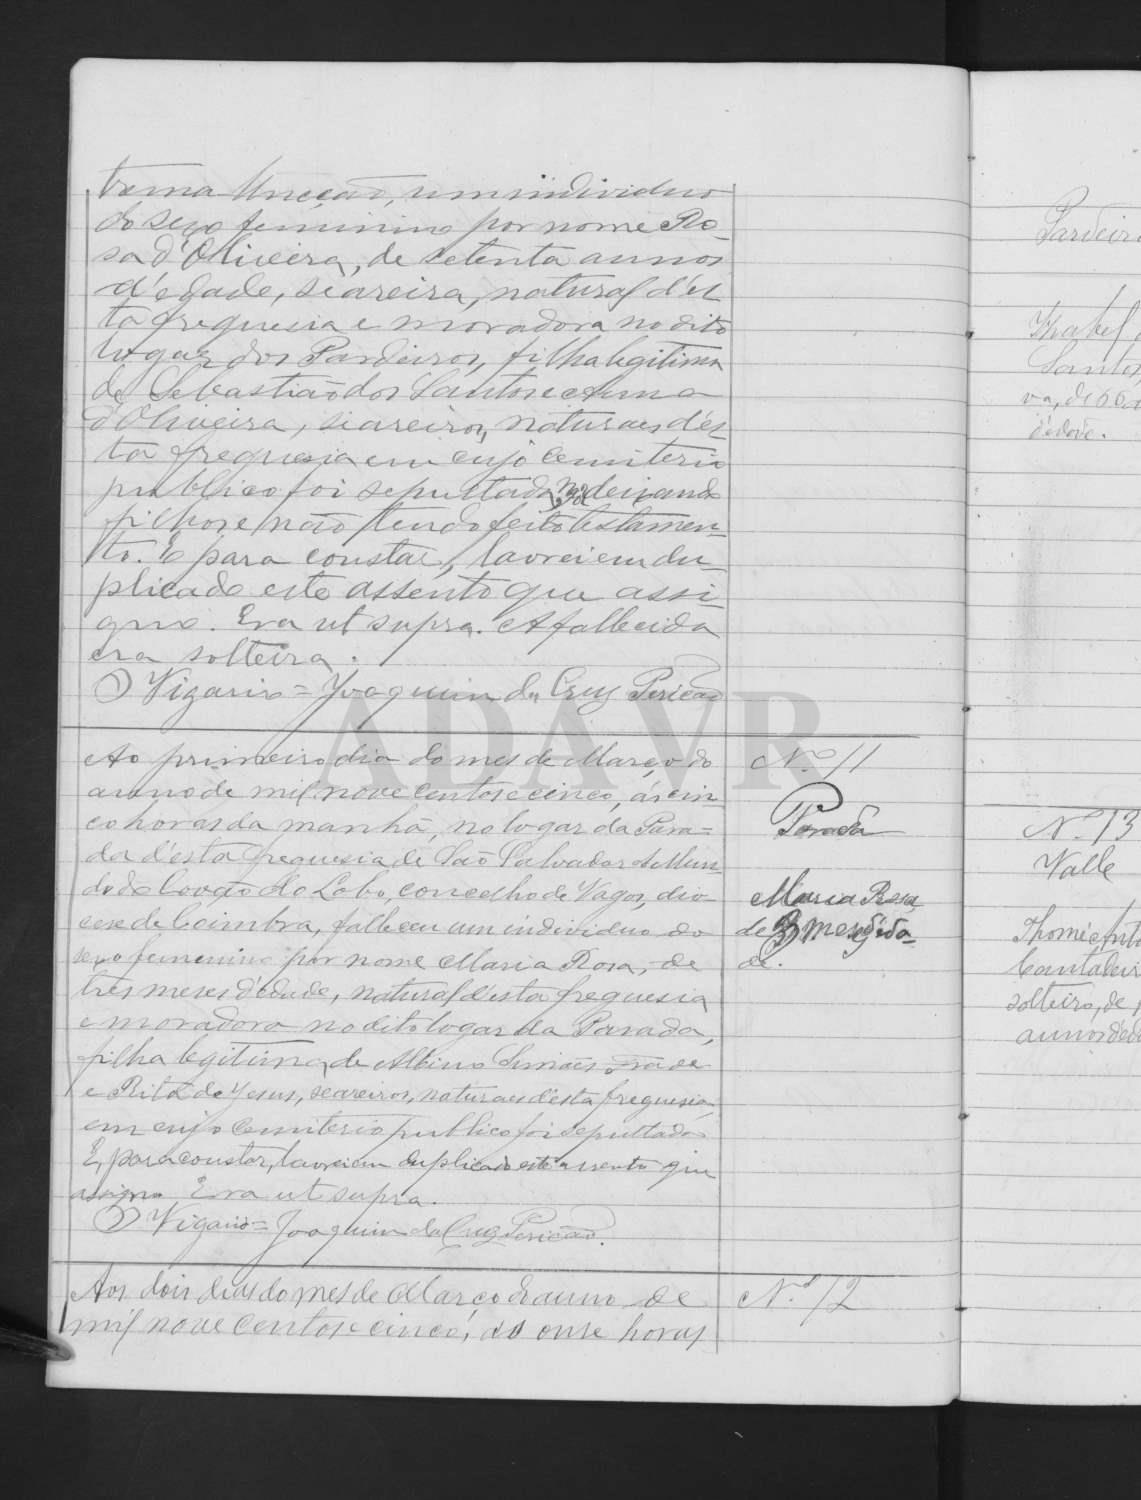 trema Uncção, um individuo
do sexo feminino por nome Ro-
sa d'Oliveira, de setenta annos
d'edade, seareira, natural d'es-
ta freguesia e moradora no dito
lugar dos Pardeiros, filha legitima
de Sebastião dos Santos e Anna
d'Oliveira, seareiros, naturaes d'es-
ta freguesia em cujo cemiterio
publico foi sepultada, não deixando
filhos e não tendo feito testamen-
to. E para constar, lavrei em du-
plicado este assento que assi-
gno. Era ut supra. A fallecida
era solteira.
O Vigario = Joaquim da Cruz Pericão
Ao primeiro dia do mes de Março do
anno de mil nove centos e cinco, ás cin-
co horas da manhã, no logar da Para=
da d'esta freguesia de São Salvador do Mun-
do do Covão do Lobo, concelho de Vagos, dio-
cese de Coimbra, falleceu um individuo do
sexo feminino por nome Maria Rosa, de
tres meses d'edade, natural d'esta freguesia
e moradora no dito logar da Parada,
filha legitima de Albino Simões
e Rita de Jesus, seareiros, naturaes d'esta freguesia,
em cujo cemiterio publico foi sepultada
E, para constar, lavrei em duplicado este assento que
assigno Era ut supra.
O Vigario = Joaquim da Cruz Pericão.
Aos dois dias do mes de Março do anno de
mil nove centos e cinco, ás onse horas
Nº 11
Parada
Maria Rosa,
de 3 meses d'eda-
de.
Nº 12
Pardeiro
Isabel
Santos
va, de 66 a
d'edade.
Nº 13
Valle
Thomé Anto
Cantador
solteiro, de
annos d'eda
ADAVR